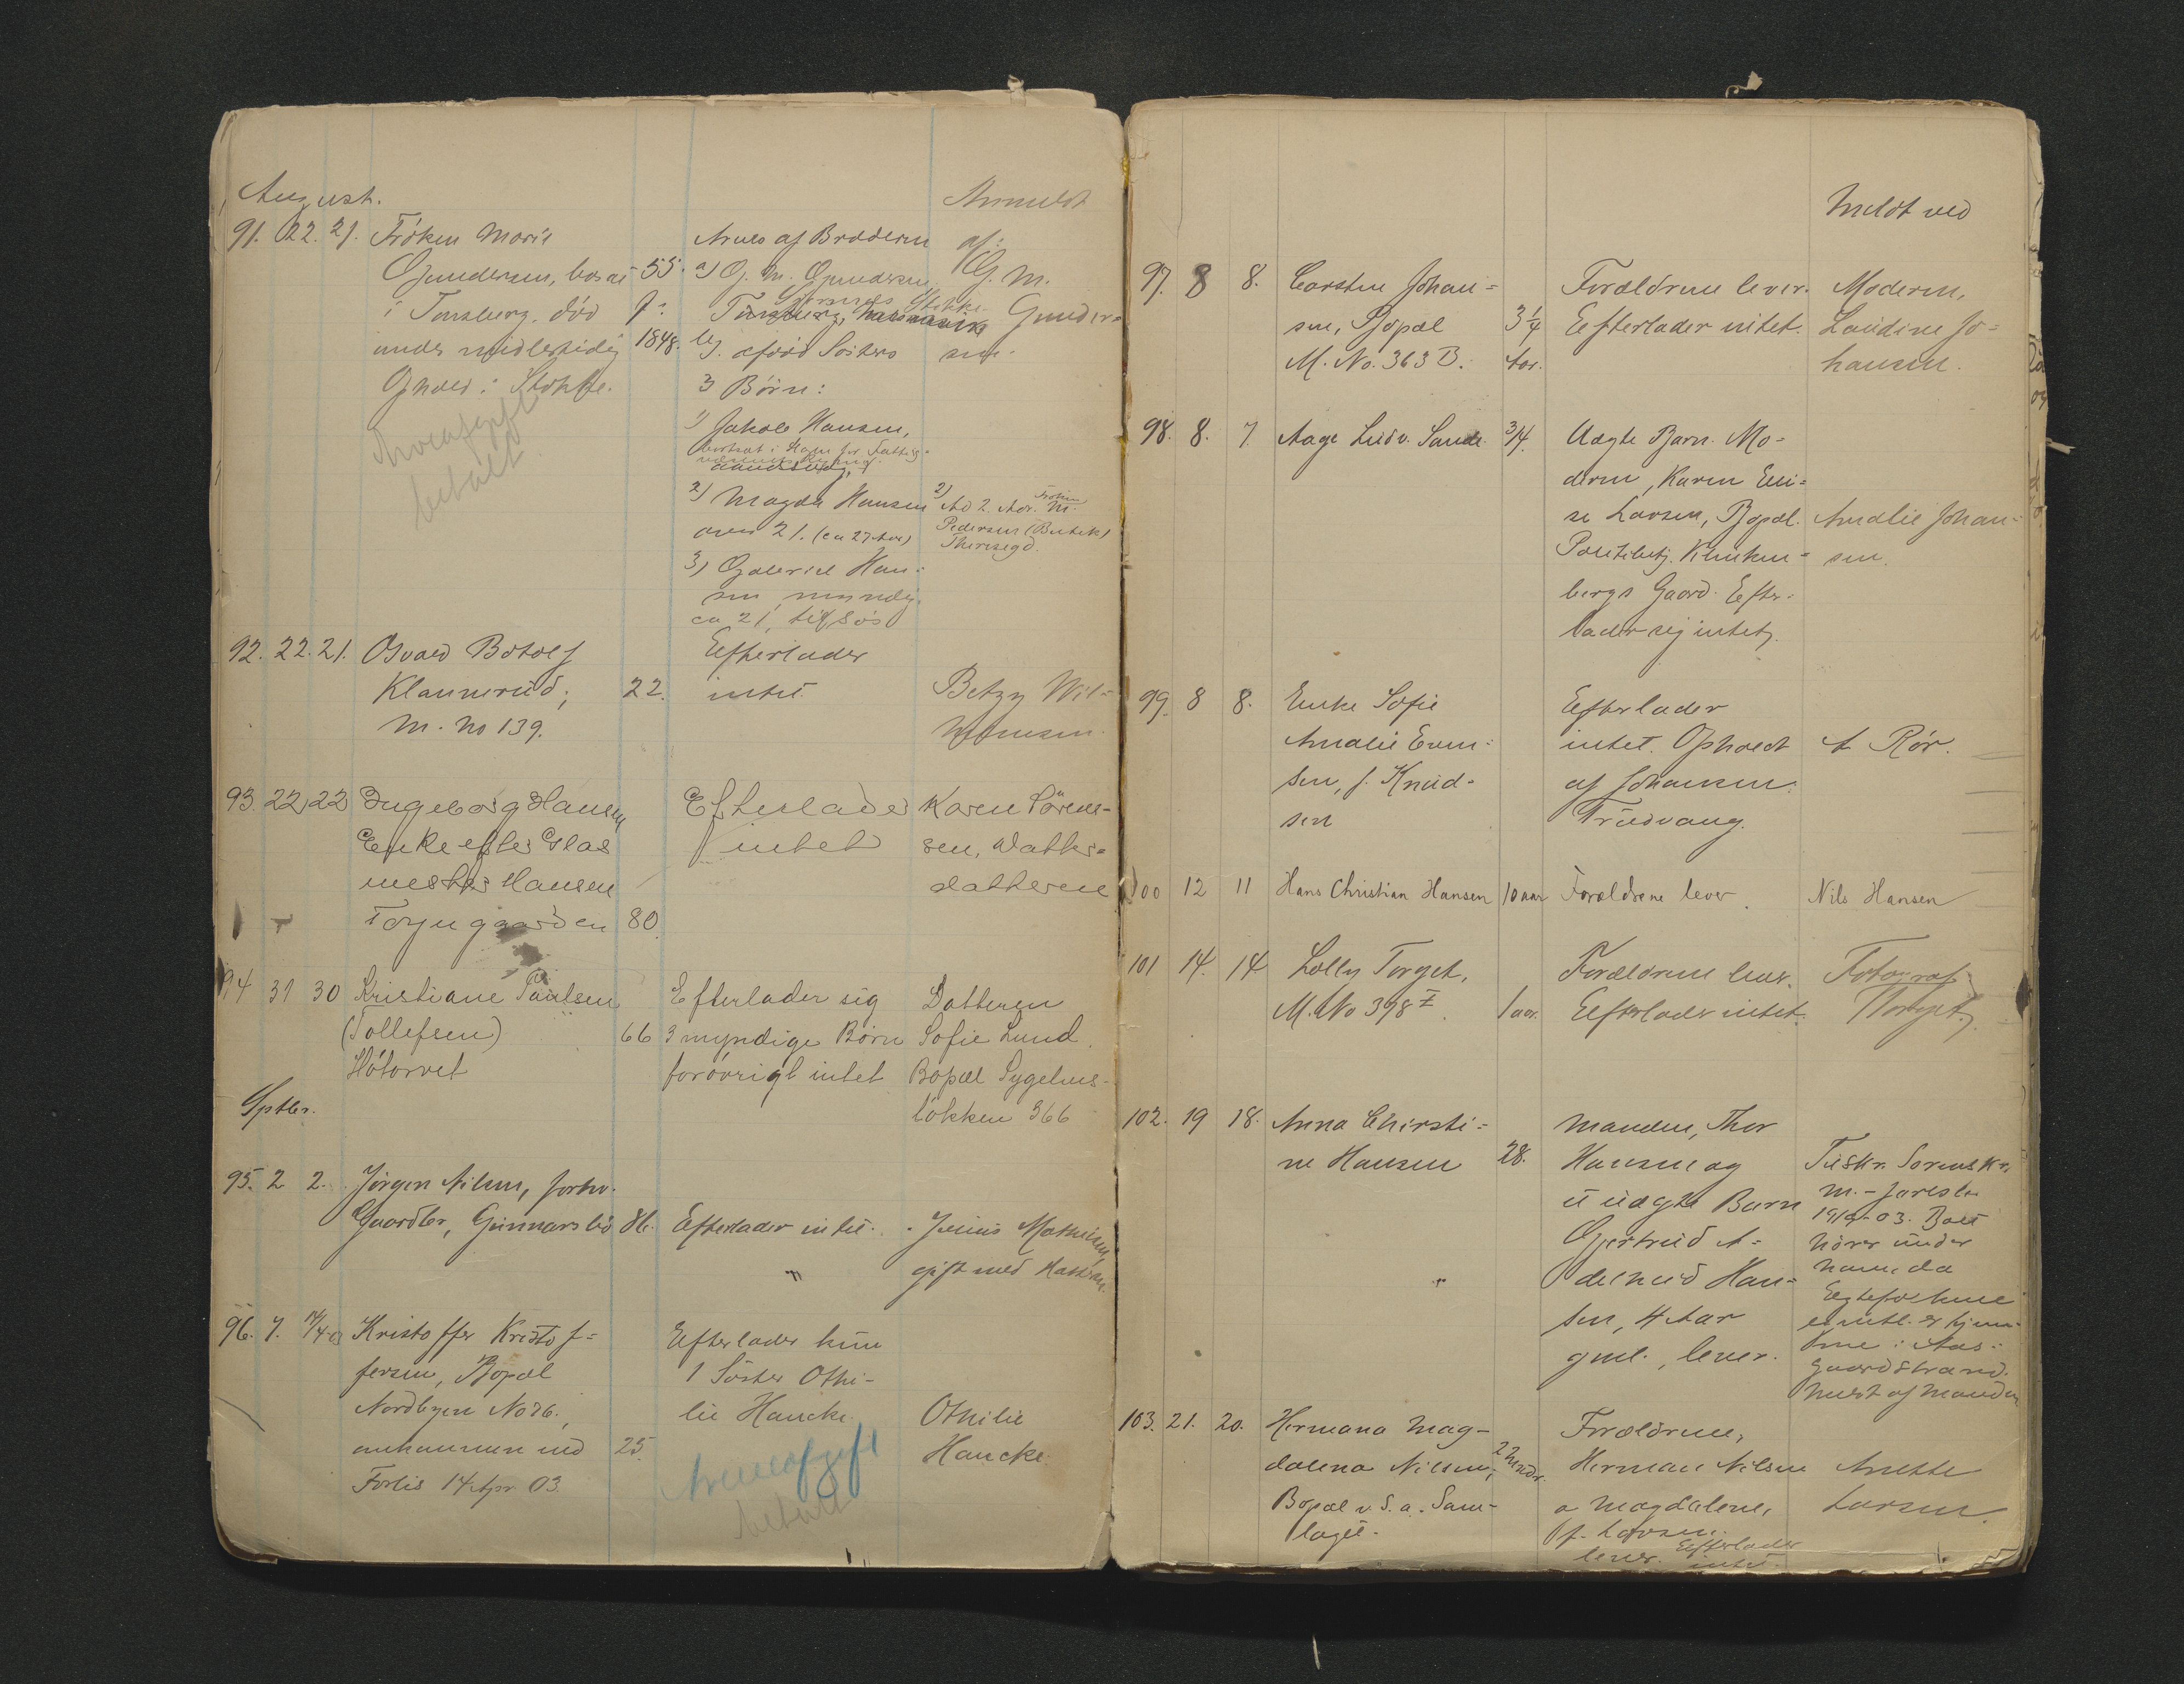 August.
Anmeldt
91. 22. 21. Fröken Marie
Gundersen, bosat 55.
i Tønsberg, død f:
under midlertidig 1848.
Ophold i Stokke.
Arveafgift
betalt
Arves af Broderen
a) G. M. Gundersen,
Stokke
Tønsberg,
b) afdød Søsters
3 Börn:
1) Jakob Hansen,
2) Magda Hansen
over 21. (ca 27 Aar)
3) Gabriel Han-
sen, myndig,
ca 21, tilsøs
af:
G. M.
Gunder-
sen.
2)
Ad 2. Adr. Frøken M.
Pedersen (Butik)
Theresegd.
92. 22. 21. Osvald Botolf
Klannerud; 22.
M. No 139.
Efterlader
intet.
Betzy Wil-
93. 22 22 Ingeborg Hansen
Enke efter Glas
mester Hansen
Farjegaarden 80.
Efterlader
intet
Karen Sören-
sen, Datter-
datteren
94 31 30 Kristiane Paulsen
(Tollefsen) 66
Høtorvet
Efterlader sig
3 myndige Börn
forövrigt intet
Datteren
Sofie Lund.
Bopæl Sygehus-
lökken 366
Sptbr.
95. 2 2. Jörgen Nilsen, forhv.
Gaardbr, Gunnarsbö 86. Efterlader intet. Julius Mathisen,
" gift med
96. 7. 14/4 03 Kristoffer Kristof-
fersen, Bopæl
Nordbyen No 26.,
ankommen med 25.
Fortis 14 Apr 03.
Efterlader kun
1 Söster Othi-
lie Hancke.
Arveafgift
betalt
Othilie
Hancke
Meldt ved
97. 8 8. Carsten Johan-
sen, Bopæl 3 1/4
M. No. 363 B. Aar.
Forældrene lever.
Efterlader intet.
Moderen,
Laudine Jo-
hansen.
98. 8. 7 Aage Ludv. Sande. 3/4.
Uægte Barn. Mo-
deren, Karen Eli-
se Larsen, Bopæl.
Politibetj. Klunken-
bergs Gaard. Efter-
lader sig intet.
Amalie Johan-
sen.
99. 8 8. Enke Sofie
Amalie Even-
sen, f. Knud-
sen
Efterlader
intet. Ophold
af Johansen.
Trudvang.
A Rör.
100 12 11 Hans Christian Hansen 10 aar Forældrene lever. Nils Hansen
101 14. 14 Lolly Torget,
M. No 398 I. 1 aar.
Forældrene lever.
Efterlader intet.
Fotograf
Torget.
102. 19 18. Anna Christi-
ne Hansen 28.
"
Manden, Thor
Hansen og
et uægte Barn
Gjertrud A-
delheid Han-
sen, 4 Aar
gml., lever.
Tilskr. Sorenskr.
m. - Jarlsb.
19/9-03. Boet
hörer under
ham, da
Egtefolkene
er hjem-
me i Aas-
gaardstrand.
Meldt af Manden
103. 21. 20. Hermana Mag-
dalena Nilsen, 2 Mndr.
Bopæl v. S. a. Sam-
laget.
Forældrene,
Herman Nilsen
o Magdalene,
f. Larsen,
lever. Efterlader
intet.
Anette
Larsen.